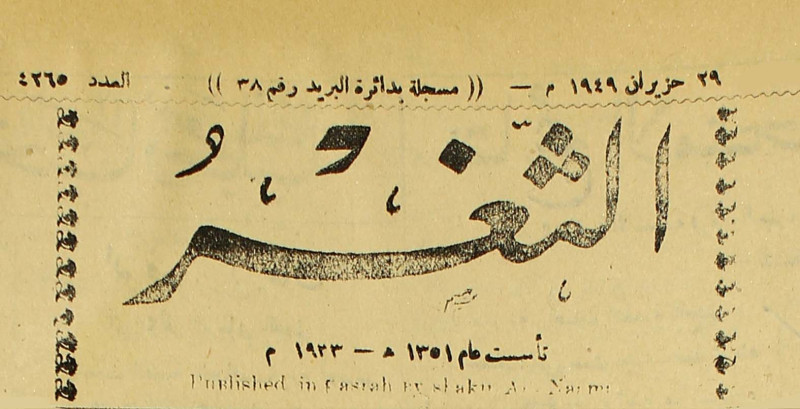 ٢٩ حزيران ١٩٤٩ م — (( مسجلة بدائرة البريد رقم ٣٨ )) العدد ٤٢٦٥
الثغر
تأسست عام ١٣٥١ هـ — ١٩٣٣ م
Published in Basrah by Shakir